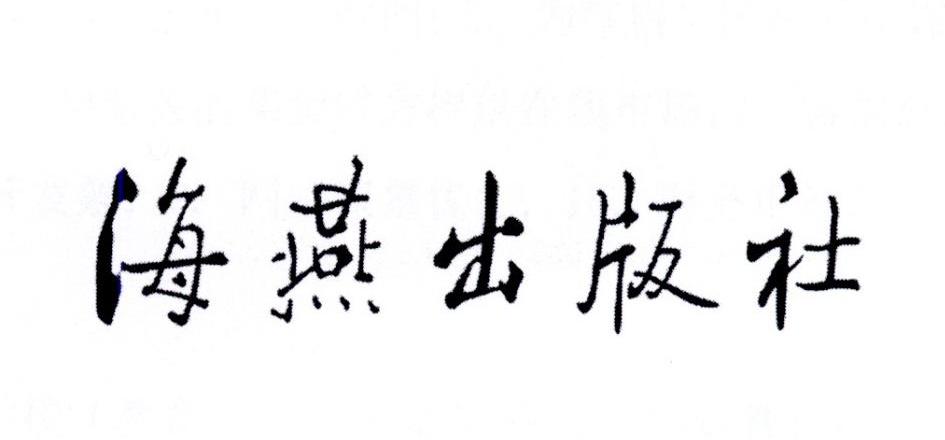 海燕出版社